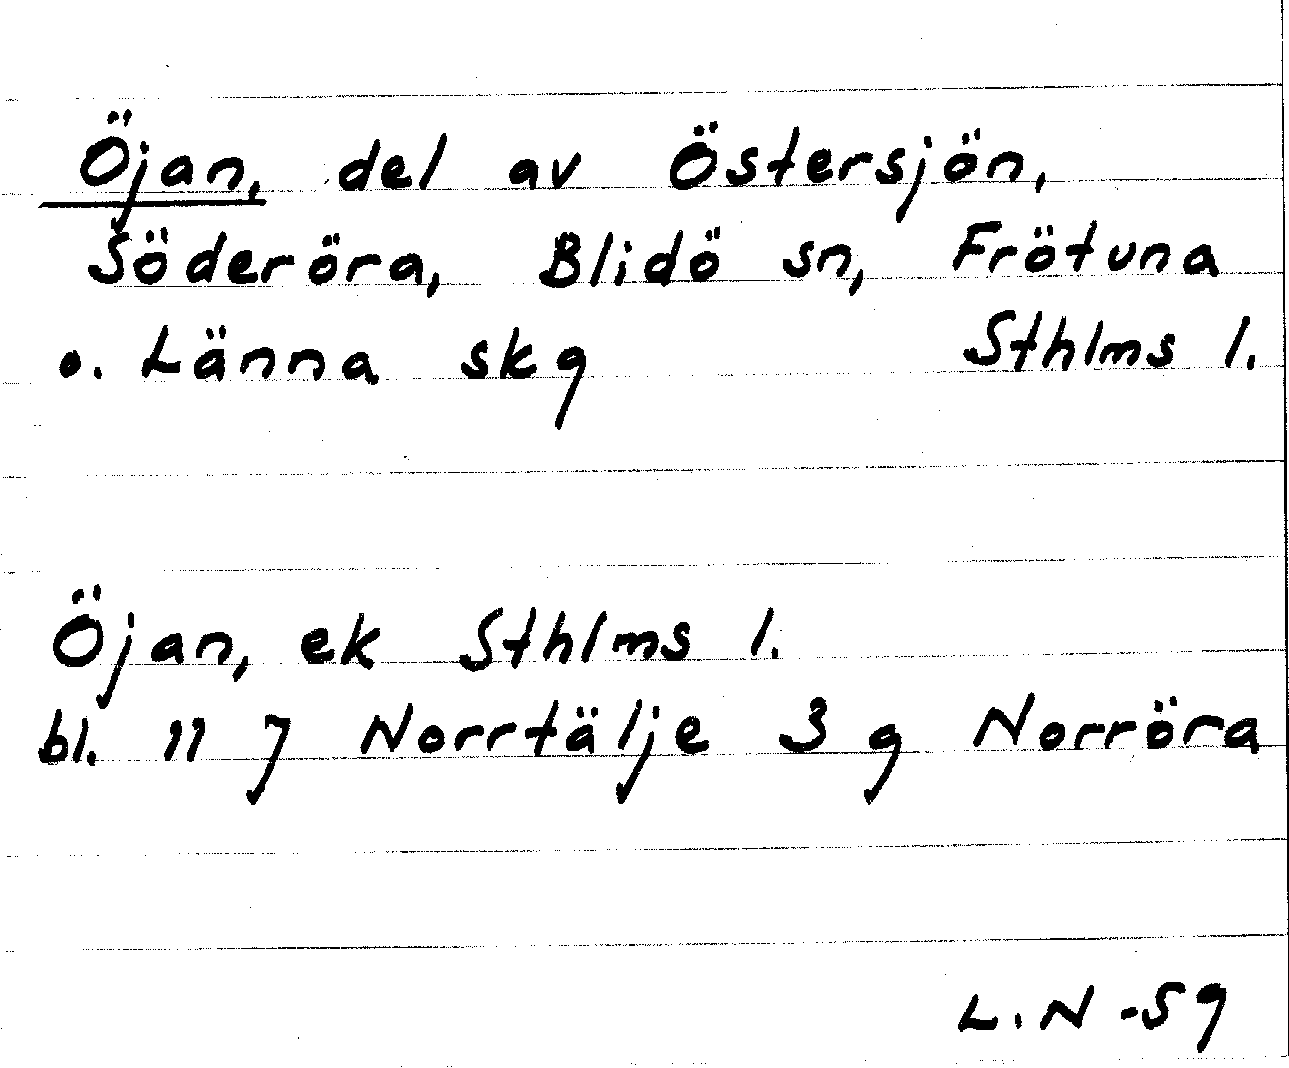 Öjan, del av Östersjön,
Söderöra, Blidö sn, Frötuna
o. Länna skg Sthlms l.
Öjan, ek Sthlms l.
bl. 11 J Norrtälje 3 g Norröra
L.N -59